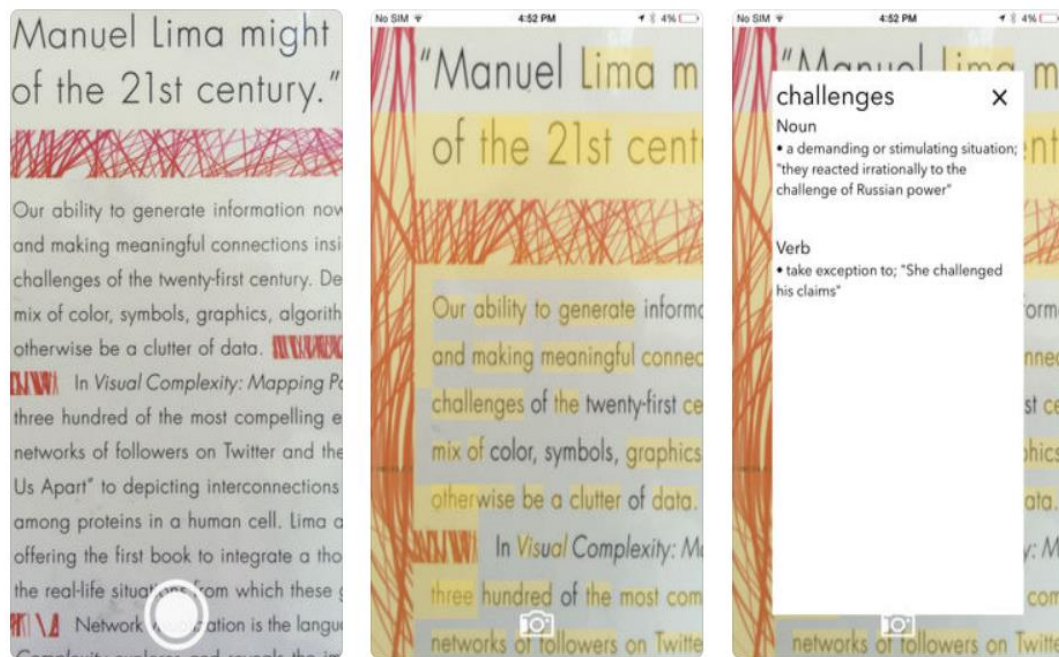 Manuel Lima might
of the 21st century."
Our ability to generate information now
and making meaningful connections insi
challenges of the twenty-first century. De
mix of color, symbols, graphics, algorith
otherwise be a clutter of data.
In Visual Complexity: Mapping Pa
three hundred of the most compelling e
networks of followers on Twitter and the
Us Apart" to depicting interconnections
among proteins in a human cell. Lima a
offering the first book to integrate a tho
the real-life situations from which these g
Network ation is the langu
No SIM 4:52 PM 4%
"Manuel Lima m
of the 21st centu
Our ability to generate informa
and making meaningful connec
challenges of the twenty-first ce
mix of color, symbols, graphics
otherwise be a clutter of data.
In Visual Complexity: Ma
three hundred of the most com
networks of followers on Twitte
No SIM 4:52 PM 4%
"Manuel Lima m
challenges
Noun
• a demanding or stimulating situation;
"they reacted irrationally to the
challenge of Russian power"
Verb
• take exception to; "She challenged
his claims"
ent
orma
nnec
st ce
phics
ata.
y: Ma
com
networks of followers on Twitte